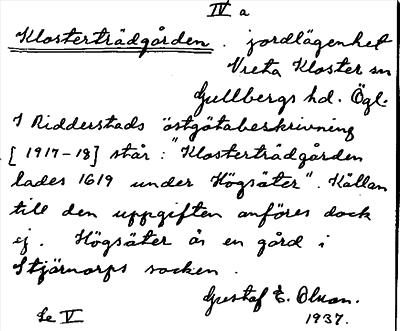 IV a
Klosterträdgården. jordlägenhet
Vreta Kloster sn
Gullbergs hd. Ögl.
I Ridderstads östgötabeskrivning
[1917-18] står: "Klosterträdgården
lades 1619 under Högsäter". Källan
till den uppgiften anföres dock
ej. Högsäter är en gård i
Stjärnorps socken.
Gustaf E. Olsson.
Se V 1937.